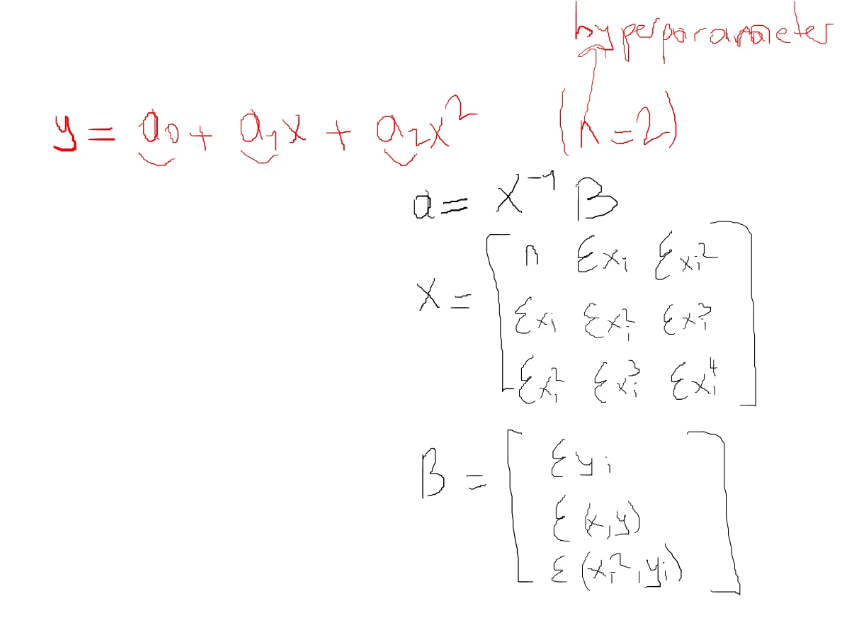 hyperparameter
y = a₀ + a₁x + a₂x² (n=2)
a = X⁻¹ B
X = [ n Σxᵢ Σxᵢ²
Σxᵢ Σxᵢ² Σxᵢ³
Σxᵢ² Σxᵢ³ Σxᵢ⁴ ]
B = [ Σyᵢ
Σ(xᵢy)
Σ(xᵢ²,yᵢ) ]